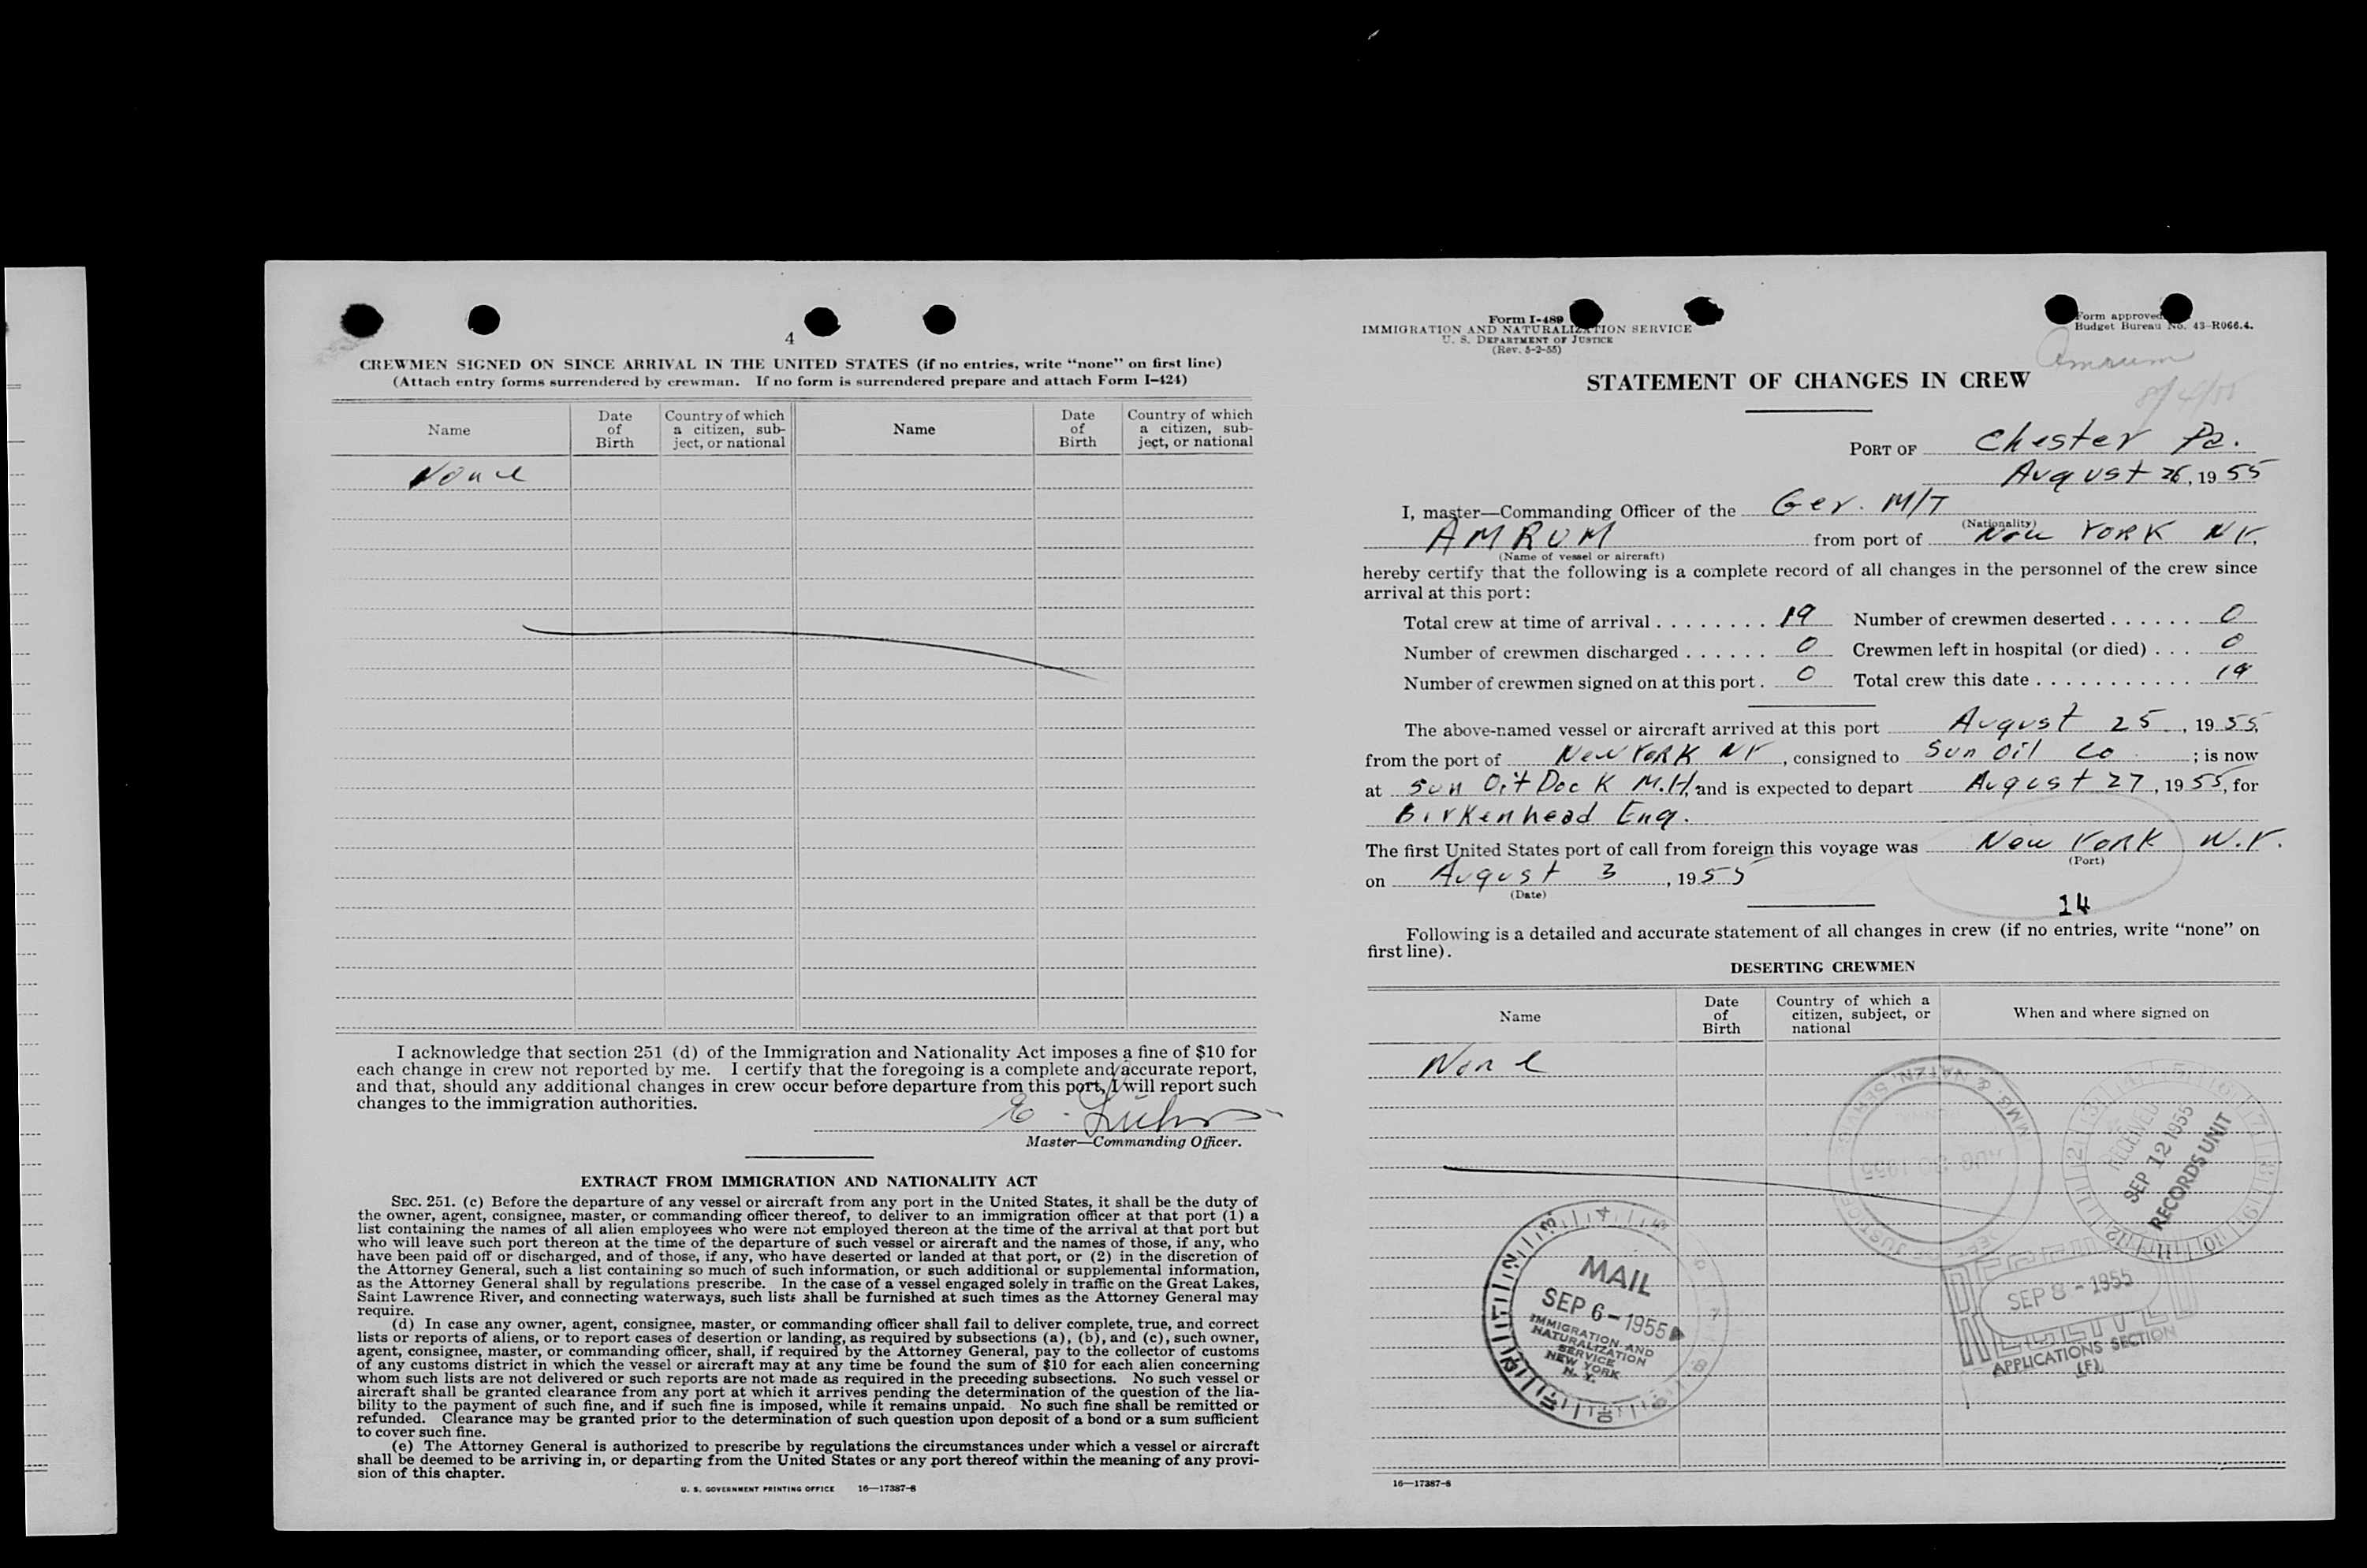 4
CREWMEN SIGNED ON SINCE ARRIVAL IN THE UNITED STATES (if no entries, write “none” on first line)
(Attach entry forms surrendered by crewman. If no form is surrendered prepare and attach Form I-424)
Name
Date of Birth
Country of which a citizen, subject, or national
Name
Date of Birth
Country of which a citizen, subject, or national
None
I acknowledge that section 251 (d) of the Immigration and Nationality Act imposes a fine of $10 for
each change in crew not reported by me. I certify that the foregoing is a complete and accurate report,
and that, should any additional changes in crew occur before departure from this port, I will report such
changes to the immigration authorities.
E.
Master—Commanding Officer.
EXTRACT FROM IMMIGRATION AND NATIONALITY ACT
SEC. 251. (c) Before the departure of any vessel or aircraft from any port in the United States, it shall be the duty of
the owner, agent, consignee, master, or commanding officer thereof, to deliver to an immigration officer at that port (1) a
list containing the names of all alien employees who were not employed thereon at the time of the arrival at that port but
who will leave such port thereon at the time of the departure of such vessel or aircraft and the names of those, if any, who
have been paid off or discharged, and of those, if any, who have deserted or landed at that port, or (2) in the discretion of
the Attorney General, such a list containing so much of such information, or such additional or supplemental information,
as the Attorney General shall by regulations prescribe. In the case of a vessel engaged solely in traffic on the Great Lakes,
Saint Lawrence River, and connecting waterways, such lists shall be furnished at such times as the Attorney General may
require.
(d) In case any owner, agent, consignee, master, or commanding officer shall fail to deliver complete, true, and correct
lists or reports of aliens, or to report cases of desertion or landing, as required by subsections (a), (b), and (c), such owner,
agent, consignee, master, or commanding officer, shall, if required by the Attorney General, pay to the collector of customs
of any customs district in which the vessel or aircraft may at any time be found the sum of $10 for each alien concerning
whom such lists are not delivered or such reports are not made as required in the preceding subsections. No such vessel or
aircraft shall be granted clearance from any port at which it arrives pending the determination of the question of the lia-
bility to the payment of such fine, and if such fine is imposed, while it remains unpaid. No such fine shall be remitted or
refunded. Clearance may be granted prior to the determination of such question upon deposit of a bond or a sum sufficient
to cover such fine.
(e) The Attorney General is authorized to prescribe by regulations the circumstances under which a vessel or aircraft
shall be deemed to be arriving in, or departing from the United States or any port thereof within the meaning of any provi-
sion of this chapter.
U. S. GOVERNMENT PRINTING OFFICE 16—17387-8
Form I-489
IMMIGRATION AND NATURALIZATION SERVICE
U. S. DEPARTMENT OF JUSTICE
(Rev. 5-2-55)
Form approved
Budget Bureau No. 43-R066.4.
Amrum
STATEMENT OF CHANGES IN CREW
PORT OF Chester Pa.
August 26, 1955
I, master—Commanding Officer of the Ger. M/T
(Nationality)
AMRUM from port of New YORK NY,
(Name of vessel or aircraft)
hereby certify that the following is a complete record of all changes in the personnel of the crew since
arrival at this port:
Total crew at time of arrival . . . . . . . . 19 Number of crewmen deserted . . . . . . 0
Number of crewmen discharged . . . . . . 0 Crewmen left in hospital (or died) . . . 0
Number of crewmen signed on at this port . 0 Total crew this date . . . . . . . . . . . . 19
The above-named vessel or aircraft arrived at this port August 25, 1955,
from the port of New YORK NY, consigned to Sun Oil Co ; is now
at Sun Oil Dock M.H, and is expected to depart August 27, 1955, for
Birkenhead Eng.
The first United States port of call from foreign this voyage was New York N.Y.
(Port)
on August 3, 1955
(Date)
14
Following is a detailed and accurate statement of all changes in crew (if no entries, write “none” on
first line).
DESERTING CREWMEN
Name
Date of Birth
Country of which a citizen, subject, or national
When and where signed on
None
RECEIVED
SEP 12 1955
RECORDS UNIT
MAIL
SEP 6 - 1955
IMMIGRATION AND
NATURALIZATION
SERVICE
NEW YORK
N. Y.
RECEIVED
SEP 8 - 1955
APPLICATIONS SECTION
(F)
16—17387-8